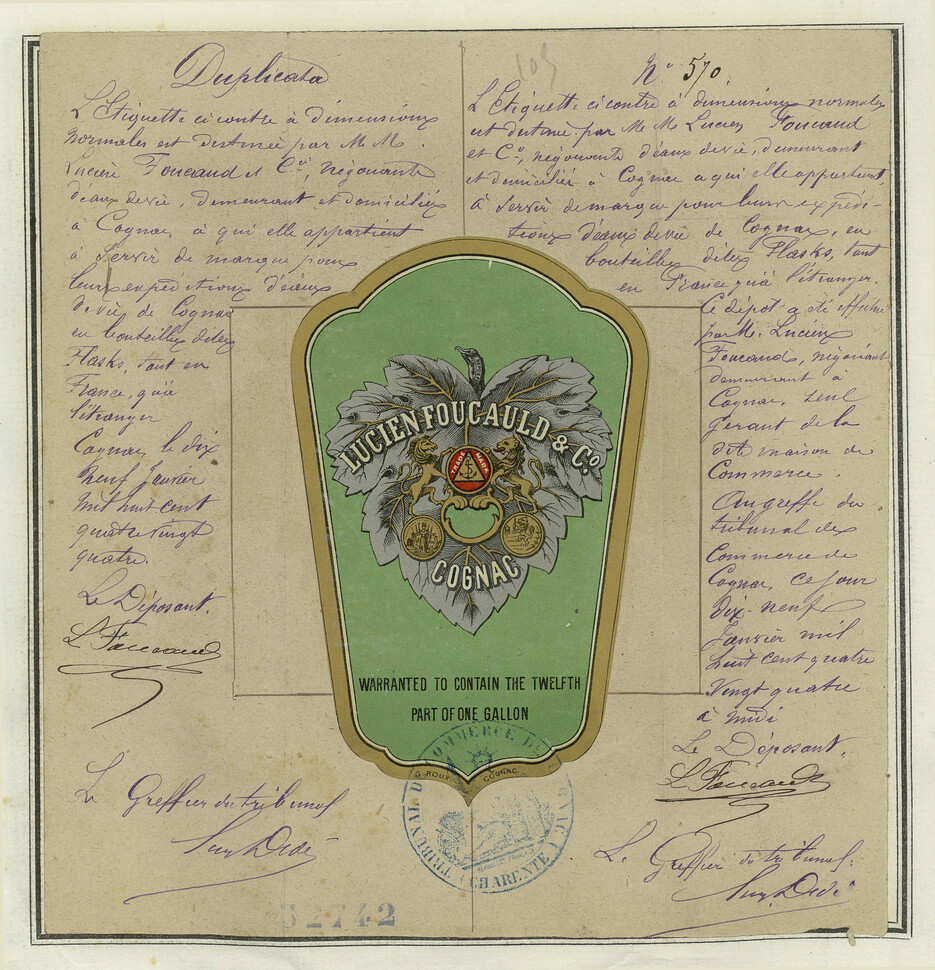 Duplicata
L'Etiquette ci contre à dimensions
normales est destinée par M M.
Lucien Foucauld et Cie, négociants
d'eaux de vie, demeurant et domiciliés
à Cognac, à qui elle appartient
à servir de marque pour
leurs expéditions d'eaux
de vie, de Cognac
en bouteilles dites
Flasks, tant en
France, qu'à
l'étranger
Cognac, le dix
neuf Janvier
mil huit cent
quatre vingt
quatre.
Le Déposant.
L Foucauld
Le Greffier du tribunal
109
N° 570.
L'Etiquette ci contre à dimensions normales
est destinée par M M Lucien Foucauld
et Co, négociants d'eaux de vie, demeurant
et domiciliés à Cognac à qui elle appartient,
à servir de marque pour leurs expédi-
tions d'eaux de vie de Cognac, en
bouteilles dites Flasks, tant
en France qu'à l'étranger.
Ce dépôt a été effectué
par M. Lucien
Foucauld, négociant
demeurant à
Cognac, seul
gérant de la
dite maison de
Commerce.
Au greffe du
tribunal de
Commerce de
Cognac, ce jour
dix-neuf
Janvier mil
huit cent quatre
vingt quatre
à midi
Le Déposant,
L Foucauld
Le Greffier du tribunal.
LUCIEN FOUCAULD & Co
TRADE MARK
COGNAC
WARRANTED TO CONTAIN THE TWELFTH
PART OF ONE GALLON
G. ROUX COGNAC
TRIBUNAL DE COMMERCE DE COGNAC
(CHARENTE)
52742